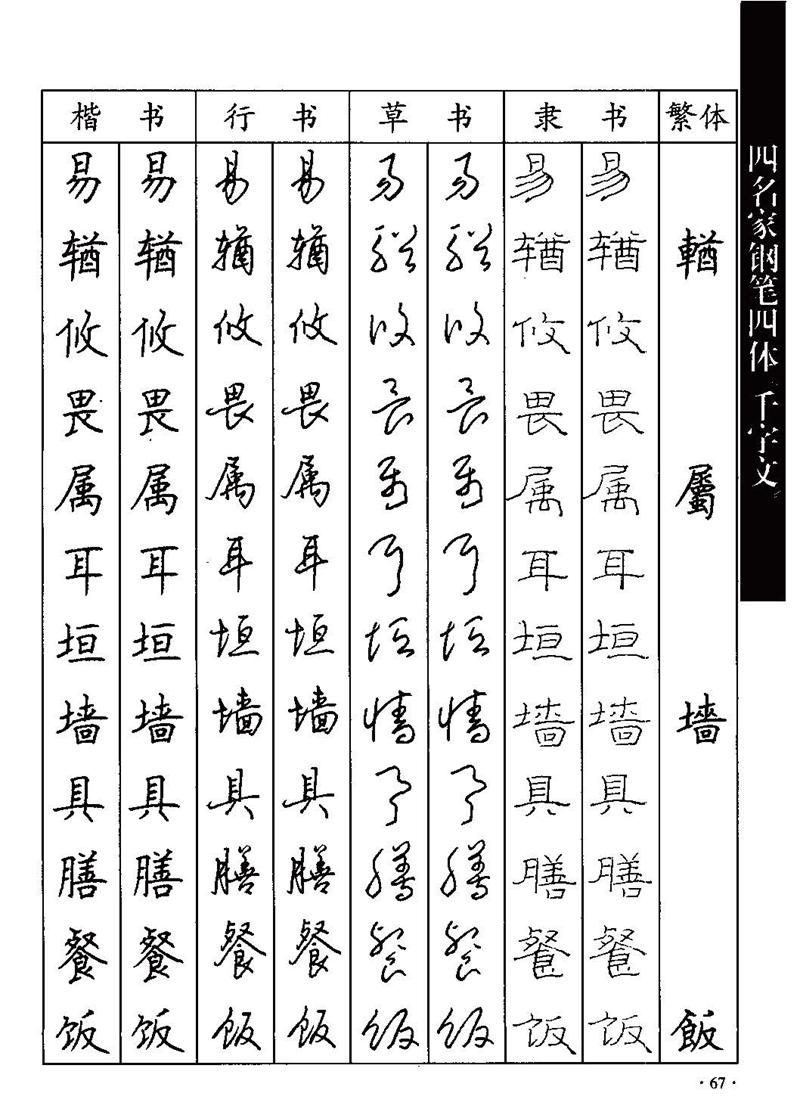 楷书 行书 草书 隶书 繁体
易 易 易 易 易 易 易 易
𬨎 𬨎 𬨎 𬨎 𬨎 𬨎 𬨎 𬨎 輶
攸 攸 攸 攸 攸 攸 攸 攸
畏 畏 畏 畏 畏 畏 畏 畏
属 属 属 属 属 属 属 属 屬
耳 耳 耳 耳 耳 耳 耳 耳
垣 垣 垣 垣 垣 垣 垣 垣
墙 墙 墙 墙 墙 墙 墙 墙 墻
具 具 具 具 具 具 具 具
膳 膳 膳 膳 膳 膳 膳 膳
餐 餐 餐 餐 餐 餐 餐 餐
饭 饭 饭 饭 饭 饭 饭 饭 飯
四名家钢笔四体千字文
·67·